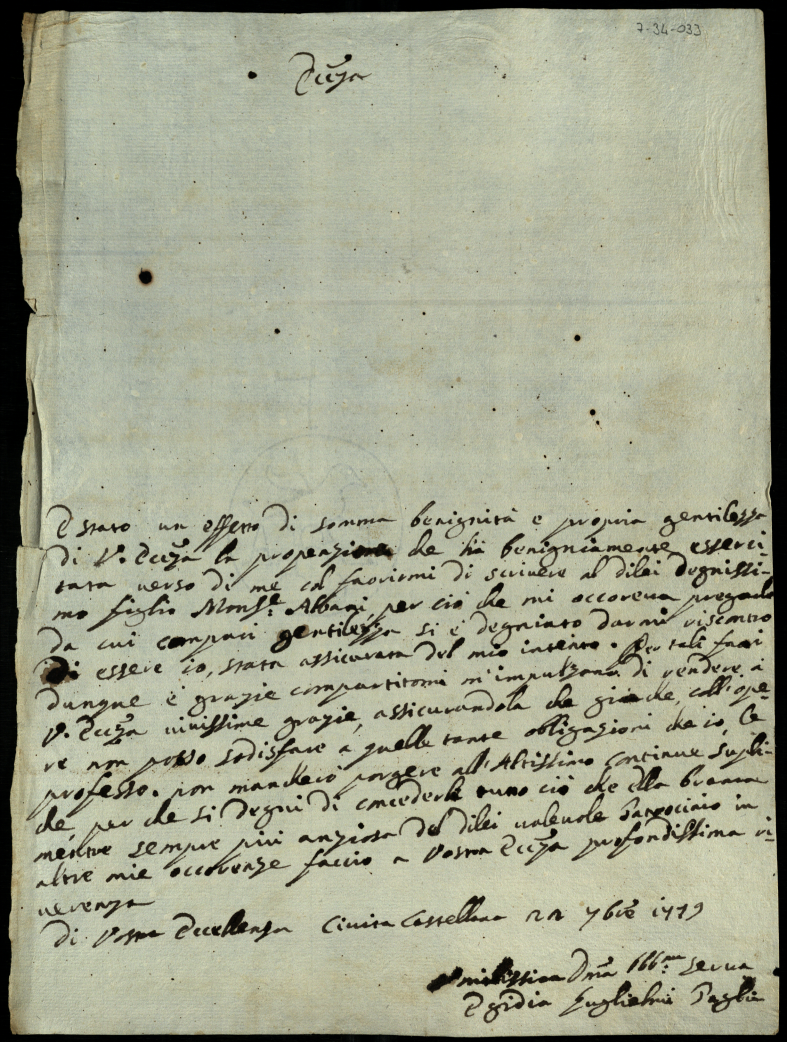 7-34-033
Eccza
È stato un effetto di somma benignità e propria gentilezza
di V. Eccza la propenzione che hà benigniamente esserci-
tata verso di me col favorirmi di scrivere al dilei degnissi-
mo figlio Monsre: Albani, per ciò che mi occoreva pregarlo
da cui con pari gentilezza si è degniato darmi riscontro
di essere io, stata assicurata del mio intento. Per tali favori
dunque è grazie compartitomi m'impulzano di rendere à
V. Eccza vivissime grazie, assicurandola che gia che, coll'ope-
re non posso sodisfare a quelle tante obligazioni che io, le
professo. non mancherò porgere all'Altissimo continue supli-
che, per che si degni di concederle tutto ciò che ella brama
mentre sempre più anziosa del dilei valevole Patrocinio in
altre mie occorenze faccio a Vostra Eccza profondissima ri-
verenza
di Vostra Eccellenza Civita Castellana 22 7bre 1779
Umilissima Dma Obbma: serva
Egidia Guglielmi Paglia